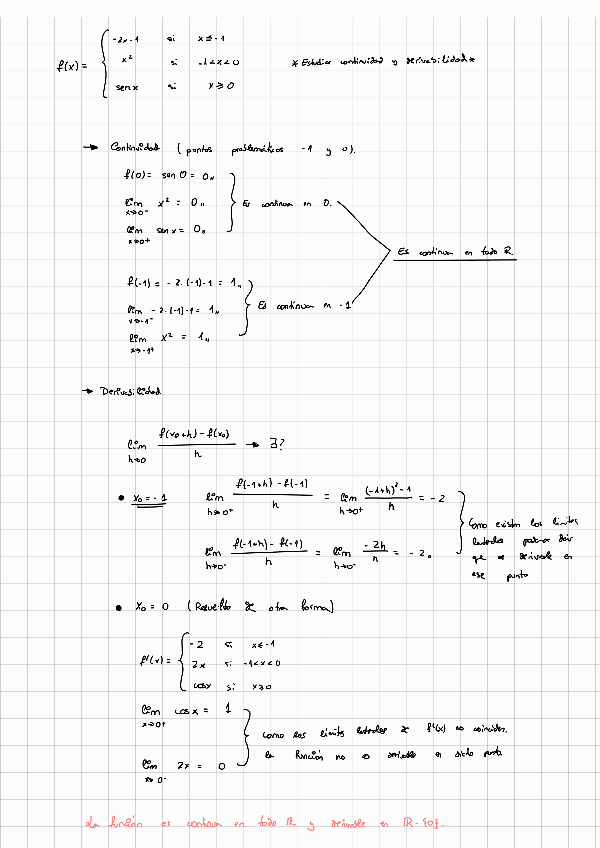 f(x) = { -2x-1 si x ≤ -1
x² si -1 < x < 0
sen x si x ≥ 0
* Estudiar continuidad y derivabilidad *
→ Continuidad (puntos problemáticos -1 y 0).
f(0) = sen 0 = 0,,
lím x→0⁻ x² = 0,,
lím x→0⁺ sen x = 0,,
Es continua en 0.
f(-1) = -2·(-1)-1 = 1,,
lím x→-1⁻ -2·(-1)-1 = 1,,
lím x→-1⁺ x² = 1,,
Es continua en -1
Es continua en todo ℝ
→ Derivabilidad
lím h→0 (f(x₀+h) - f(x₀))/h → ∃?
• x₀ = -1
lím h→0⁺ (f(-1+h) - f(-1))/h = lím h→0⁺ ((-1+h)² - 1)/h = -2
lím h→0⁻ (f(-1+h) - f(-1))/h = lím h→0⁻ -2h/h = -2
Como existen los límites
laterales
que es derivable en
ese punto
• x₀ = 0 (Resuelto de otra forma)
f'(x) = { -2 si x < -1
2x si -1 < x < 0
cos x si x ≥ 0
lím x→0⁺ cos x = 1
lím x→0⁻ 2x = 0
como los límites laterales de f'(x) no coinciden,
la función no es derivable en dicho punto.
La función es continua en todo ℝ y derivable en ℝ - {0}.